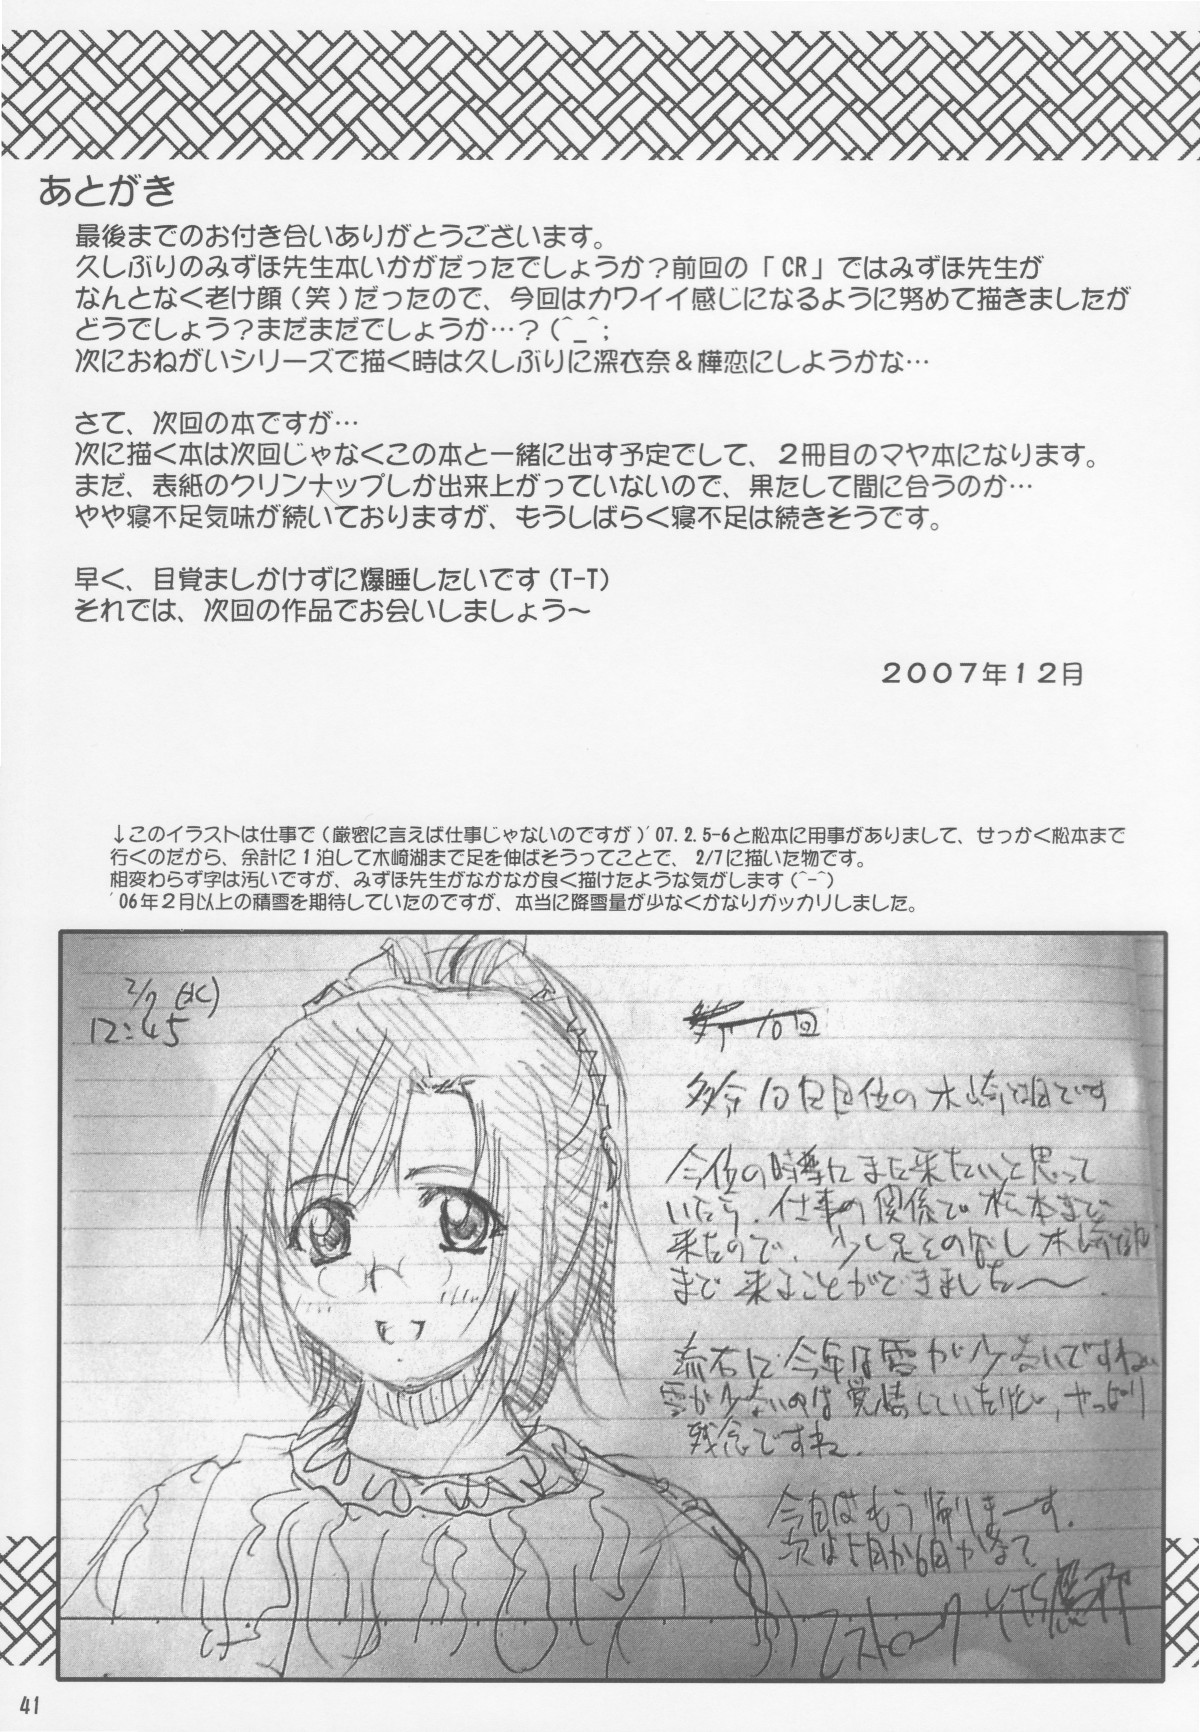 あとがき
最後までのお付き合いありがとうございます。
久しぶりのみずほ先生本いかがだったでしょうか？前回の「CR」ではみずほ先生が
なんとなく老け顔(笑)だったので、今回はカワイイ感じになるように努めて描きましたが
どうでしょう？まだまだでしょうか…？(^_^;
次におねがいシリーズで描く時は久しぶりに深衣奈＆樺恋にしようかな…
さて、次回の本ですが…
次に描く本は次回じゃなくこの本と一緒に出す予定でして、２冊目のマヤ本になります。
まだ、表紙のクリンナップしか出来上がっていないので、果たして間に合うのか…
やや寝不足気味が続いておりますが、もうしばらく寝不足は続きそうです。
早く、目覚ましかけずに爆睡したいです(T-T)
それでは、次回の作品でお会いしましょう～
２００７年１２月
↓このイラストは仕事で(厳密に言えば仕事じゃないのですが)'07.2.5-6と松本に用事がありまして、せっかく松本まで
行くのだから、余計に１泊して木崎湖まで足を伸ばそうってことで、2/7に描いた物です。
相変わらず字は汚いですが、みずほ先生がなかなか良く描けたような気がします(^-^)
'06年２月以上の積雪を期待していたのですが、本当に降雪量が少なくかなりガッカリしました。
2/7(水)
12:45
10回
多分10回目位の木崎湖です
今位の時季にまた来たいと思って
いたら、仕事の関係で松本まで
来たので、少し足をのばし木崎湖
まで来ることができました～
流石に今年は雪が少ないですね
雪が少ないのは覚悟していたけど、やっぱり
残念ですね。
今日はもう帰りまーす。
次は5月か6月かなぁ
41